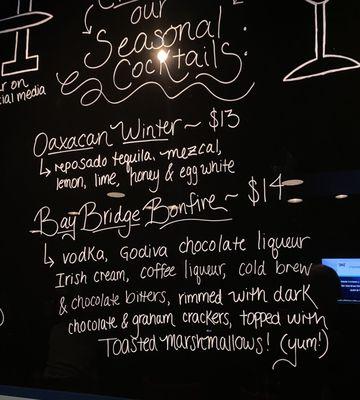 our
Seasonal
Cocktails.
on
social media
Oaxacan Winter ~ $13
reposado tequila, mezcal,
lemon, lime, honey & egg white
Bay Bridge Bonfire ~ $14
vodka, Godiva chocolate liqueur
Irish cream, coffee liqueur, cold brew
& chocolate bitters, rimmed with dark
chocolate & graham crackers, topped with
Toasted Marshmallows! (yum!)